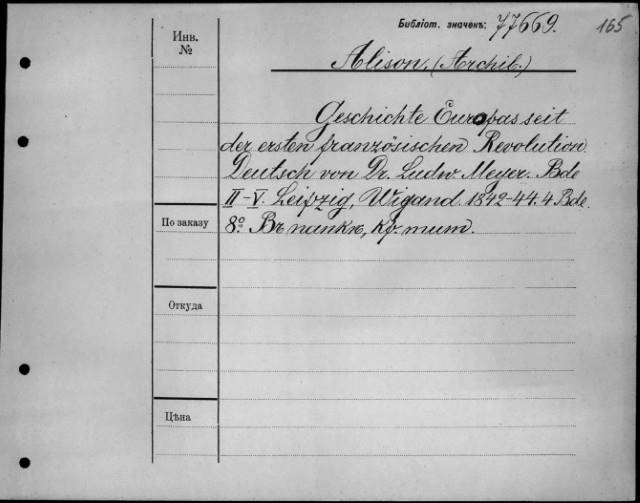 Библіот. значекъ: 77669.
165
Инв.
№
Alison, (Archib.)
Geschichte Europas seit
der ersten französischen Revolution
Deutsch von Dr. Ludw. Meyer. Bde
II-V. Leipzig, Wigand. 1842-44. 4 Bde.
По заказу
8.° Въ папкѣ, кр. тит.
Откуда
Цѣна